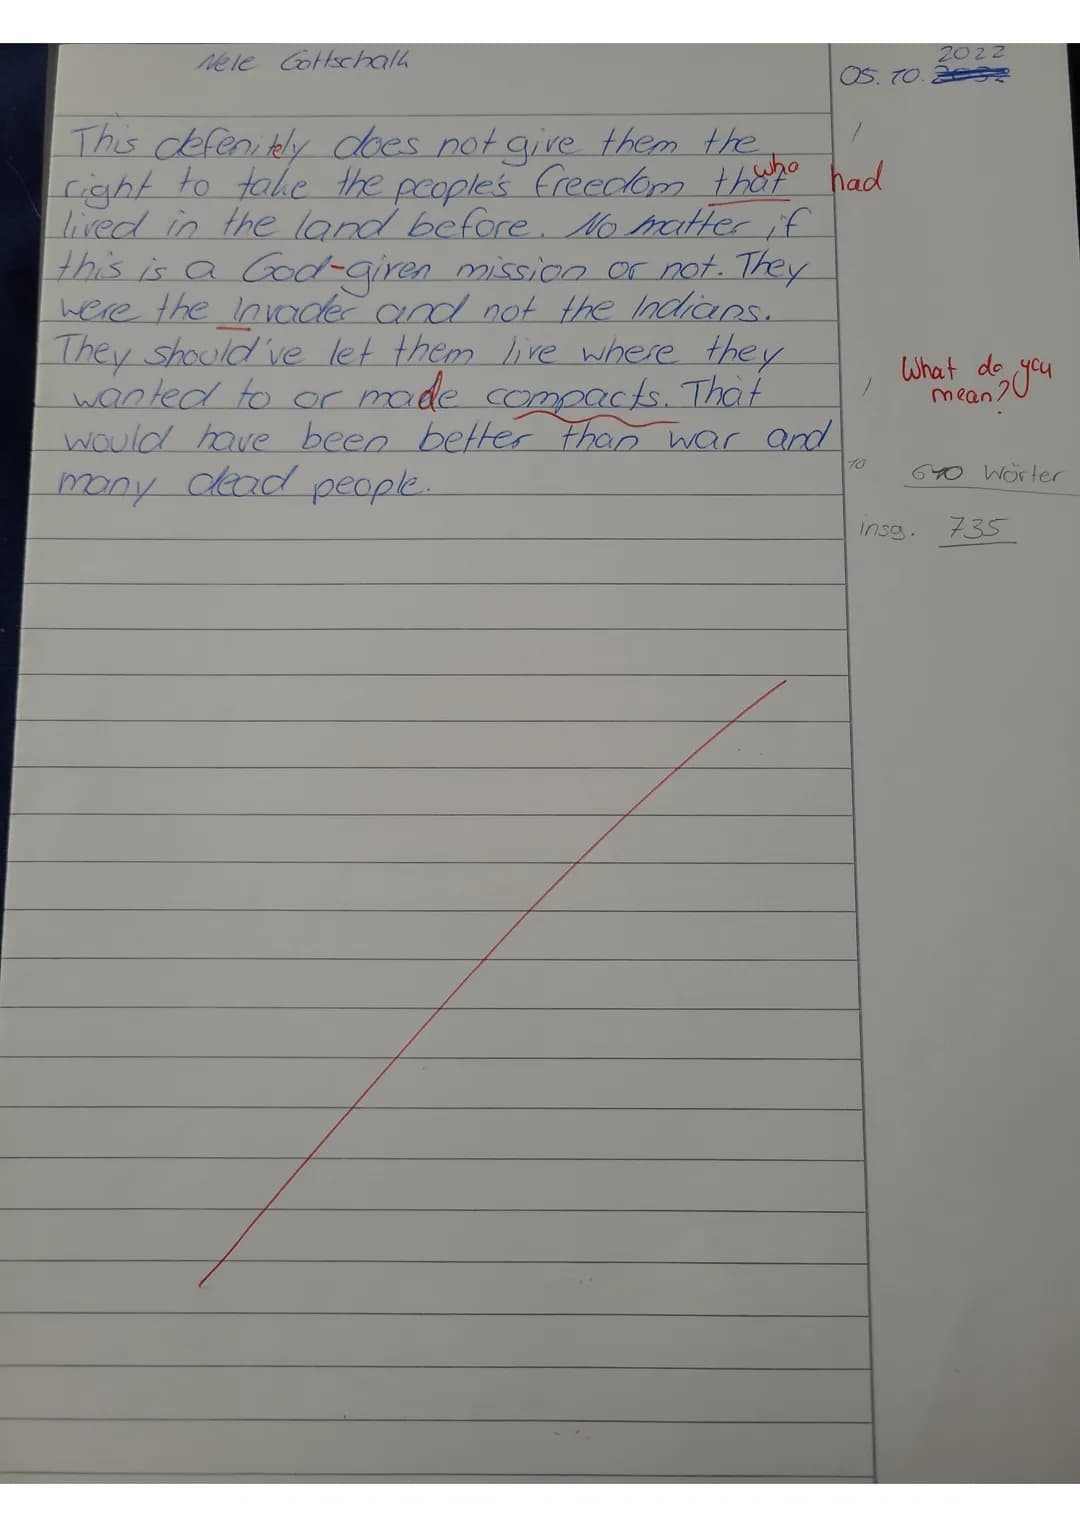 Nele Gottschalk
2022
05.10.
This defenitely does not give them the
right to take the people's freedom that who had
lived in the land before. No matter if
this is a God-given mission or not. They
were the invader and not the Indians.
They should've let them live where they
wanted to or made compacts. That
would have been better than war and
many dead people.
What do you
mean?
10
Wörter
insg. 735